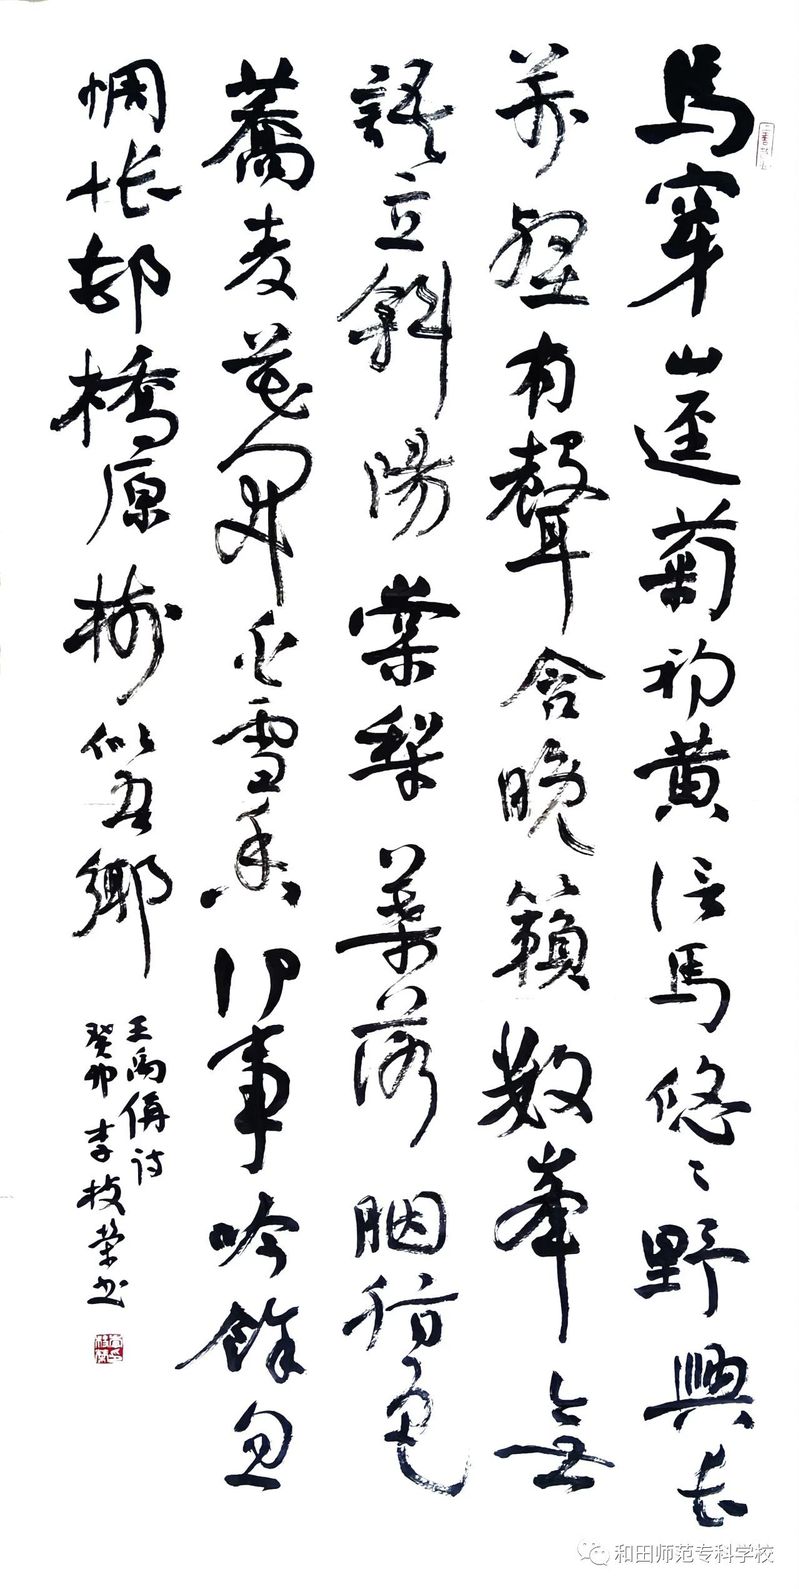 馬穿山逕菊初黄信馬悠々野興長
萬壑有聲含晚籟数峯無
語立斜陽棠梨葉落胭脂色
蕎麦花開白雪香何事吟餘忽
惆怅邨橋原樹似吾鄉
王禹偁诗
癸卯李枝荣书
和田师范专科学校